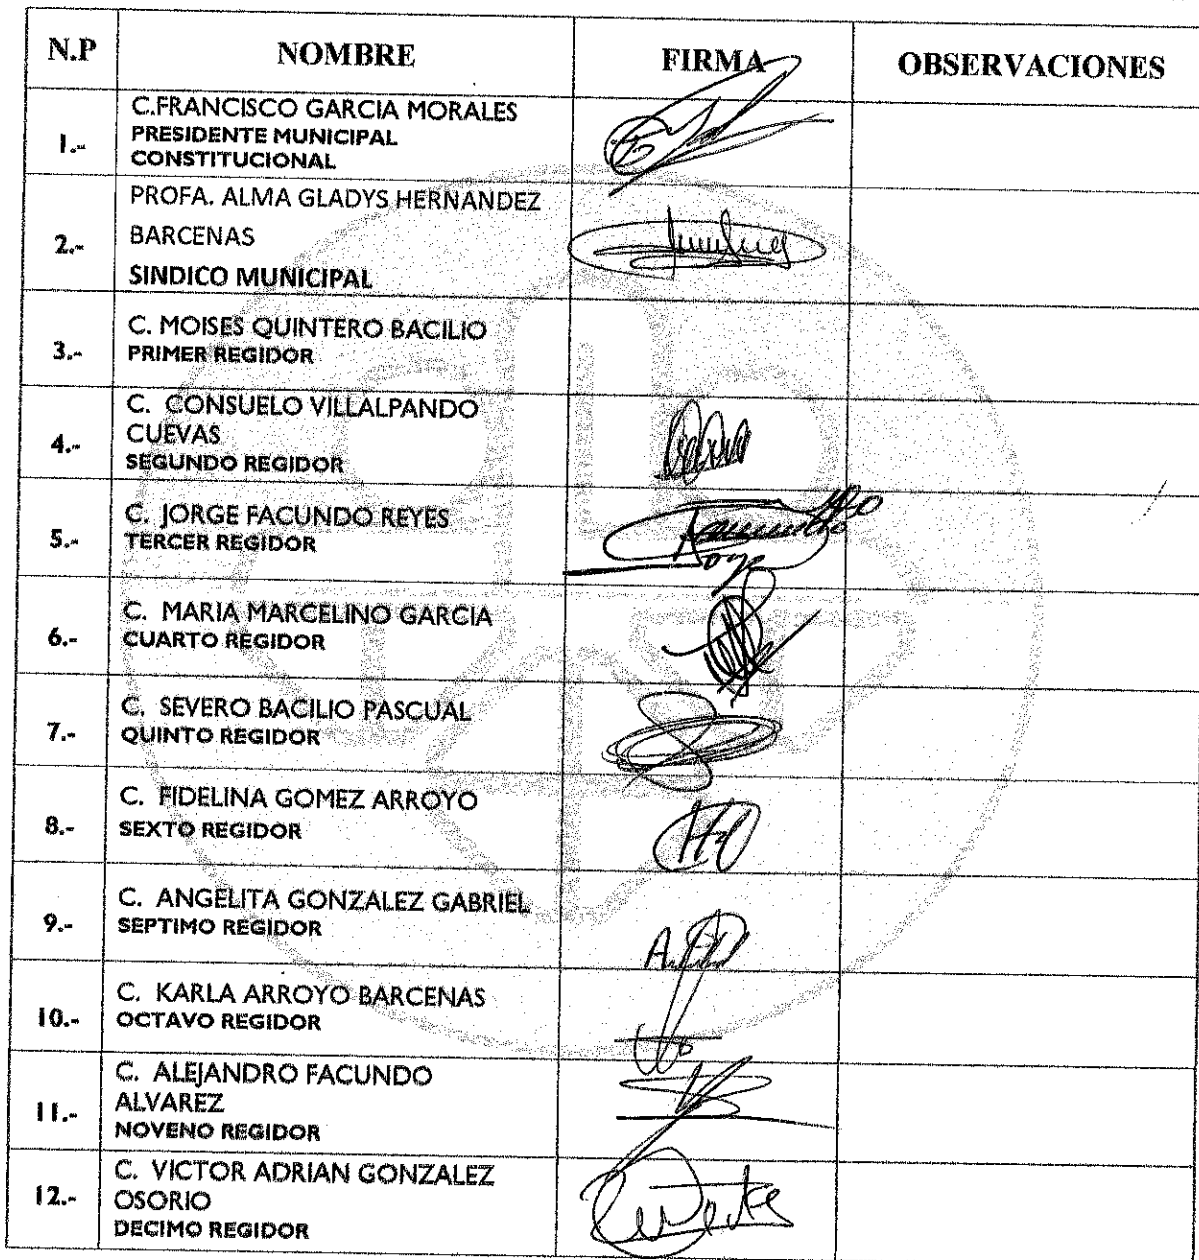 N.P NOMBRE FIRMA OBSERVACIONES
1.- C.FRANCISCO GARCIA MORALES
PRESIDENTE MUNICIPAL
CONSTITUCIONAL
2.- PROFA. ALMA GLADYS HERNANDEZ
BARCENAS
SINDICO MUNICIPAL
3.- C. MOISES QUINTERO BACILIO
PRIMER REGIDOR
4.- C. CONSUELO VILLALPANDO
CUEVAS
SEGUNDO REGIDOR
5.- C. JORGE FACUNDO REYES
TERCER REGIDOR
6.- C. MARIA MARCELINO GARCIA
CUARTO REGIDOR
7.- C. SEVERO BACILIO PASCUAL
QUINTO REGIDOR
8.- C. FIDELINA GOMEZ ARROYO
SEXTO REGIDOR
9.- C. ANGELITA GONZALEZ GABRIEL
SEPTIMO REGIDOR
10.- C. KARLA ARROYO BARCENAS
OCTAVO REGIDOR
11.- C. ALEJANDRO FACUNDO
ALVAREZ
NOVENO REGIDOR
12.- C. VICTOR ADRIAN GONZALEZ
OSORIO
DECIMO REGIDOR